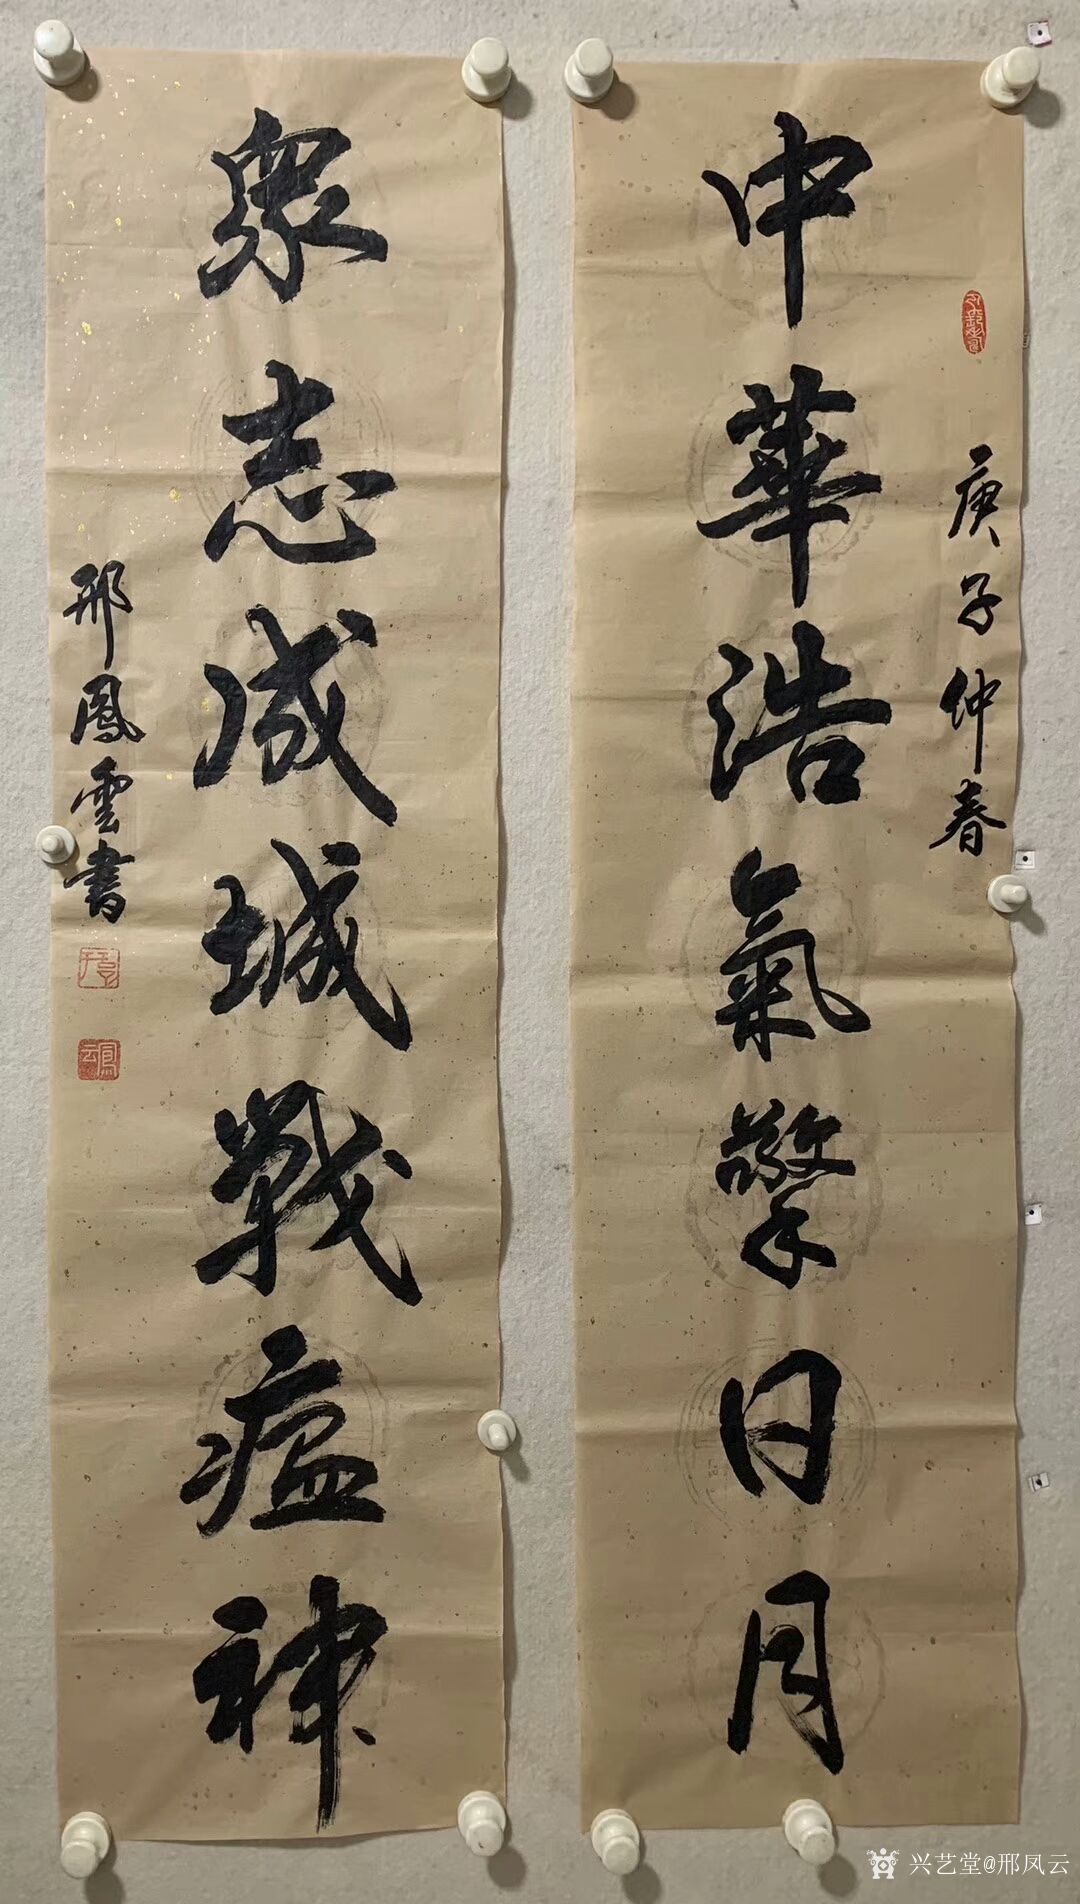 庚子仲春
中華浩氣擎日月
衆志成城戰瘟神
邢鳳雲書
兴艺堂@邢凤云